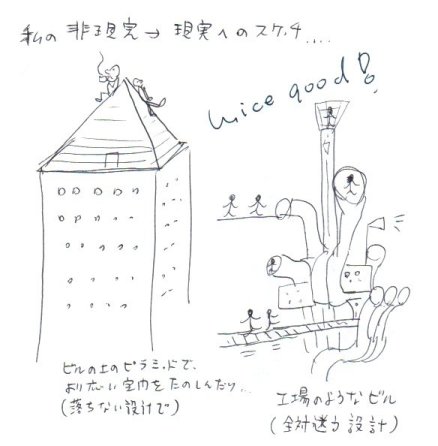 私の 非現実→現実へのスケッチ....
nice good!
ビルの上のピラミッドで、
より広い室内をたのしんだり...
(落ちない設計で)
工場のようなビル
(全対迷力 設計)